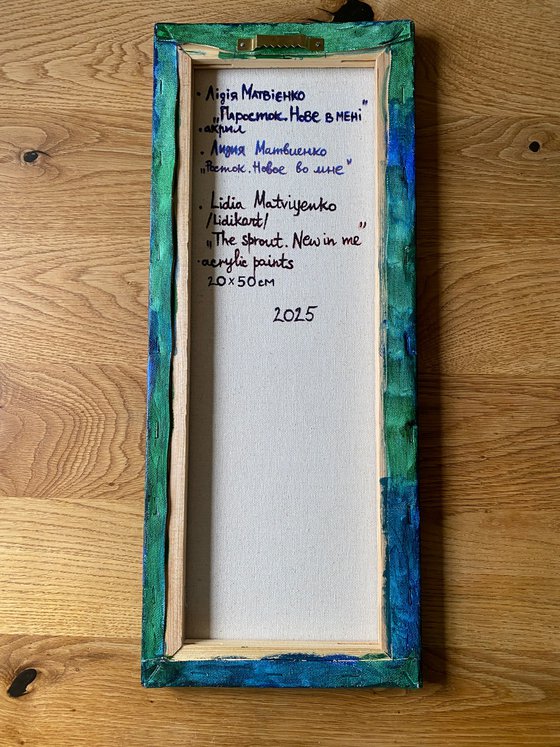 • Лідія Матвієнко
„Паросток. Нове в мені"
• акрил
• Лидия Матвиенко
„Росток. Новое во мне"
• Lidia Matviyenko
/Lidikart/
„The sprout. New in me"
• acrylic paints
20×50см
2025